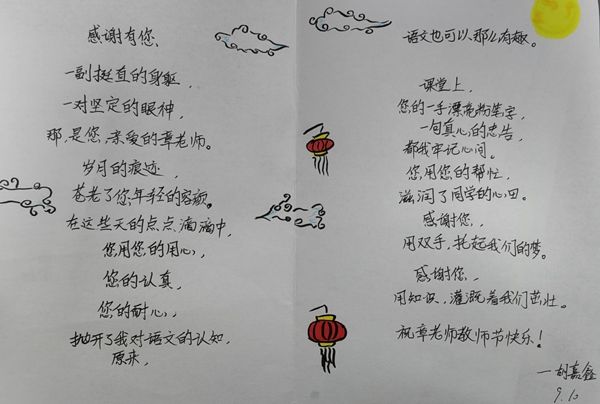 感谢有您,
一副挺直的身躯,
一对坚定的眼神,
那,是您,亲爱的章老师。
岁月的痕迹,
苍老了您年轻的容颜。
在这些天的点点滴滴中,
您用您的用心,
您的认真,
您的耐心,
抛开了我对语文的认知,
原来,
语文也可以那么有趣。
课堂上,
您的一手漂亮粉笔字,
一句真心的忠告,
都我牢记心间。
您,用您的帮忙,
滋润了同学的心田。
感谢您,
用双手,托起我们的梦。
感谢您,
用知识,灌溉着我们茁壮。
祝章老师教师节快乐!
一胡嘉鑫
9.10